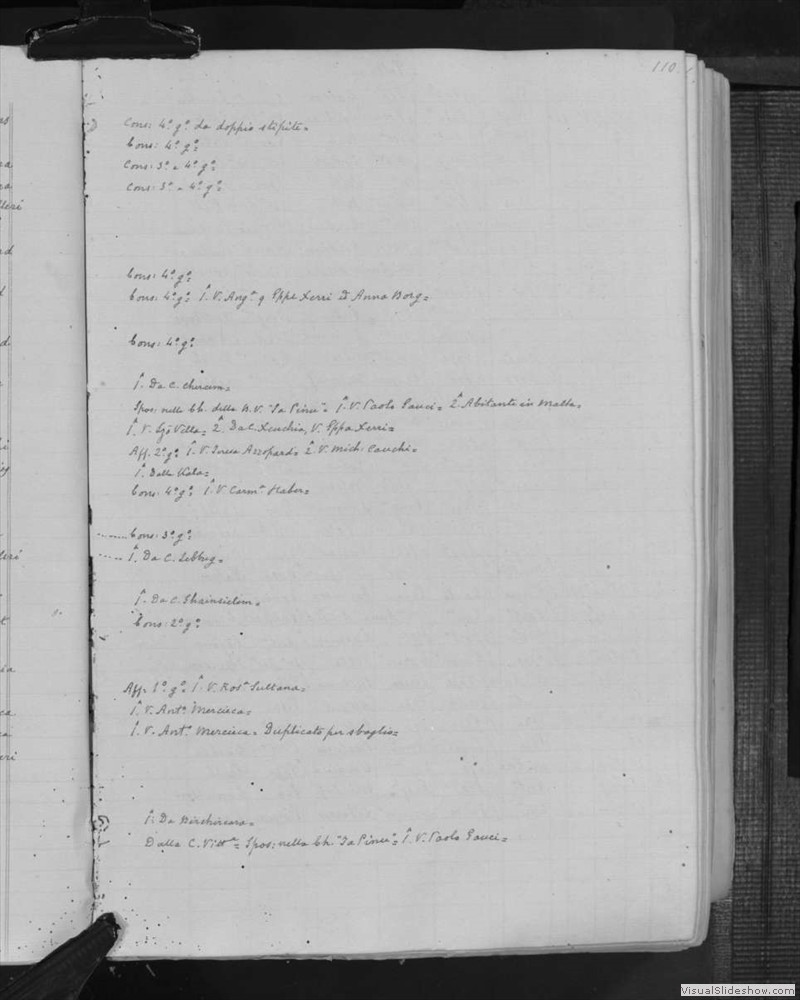 110
Cons: 4º gº da doppio stipite=
Cons: 4º gº=
Cons: 3º = 4º gº=
Cons: 3º = 4º gº=
lleri
Cons: 4º gº=
Cons: 4º gº= 1ª V. Angª q Pppe Xerri di Anna Borg=
Cons: 4º gº=
1ª Da C.
Spos: nella Ch. della B.V. "Ta Pinu"= 1ª V. Paolo Gauci= 2ª Abitante in Malta=
1ª V. Villa= 2ª Da C. Xeuchia, V. Pppa Xerri=
Aff. 2º gº 1ª V. Teresa Azzopardi= 2ª V. Mich: Cauchi=
1ª Dalla Kala=
Cons: 4º gº= 1ª V. Carmª Haber=
Cons: 3º gº=
1ª Da C. Zebbug=
1ª Da C. Ghainsielem=
Cons: 2º gº=
Aff. 1º gº= 1ª V. Rosª Sultana=
1ª V. Antª Mercieca=
1ª V. Antª Mercieca= Duplicato per sbaglio=
1ª Da Birchircara=
Dalla C. Vittª= Spos: nella Ch. "Ta Pinu"= 1ª V. Paolo Gauci=
VisualSlideshow.com